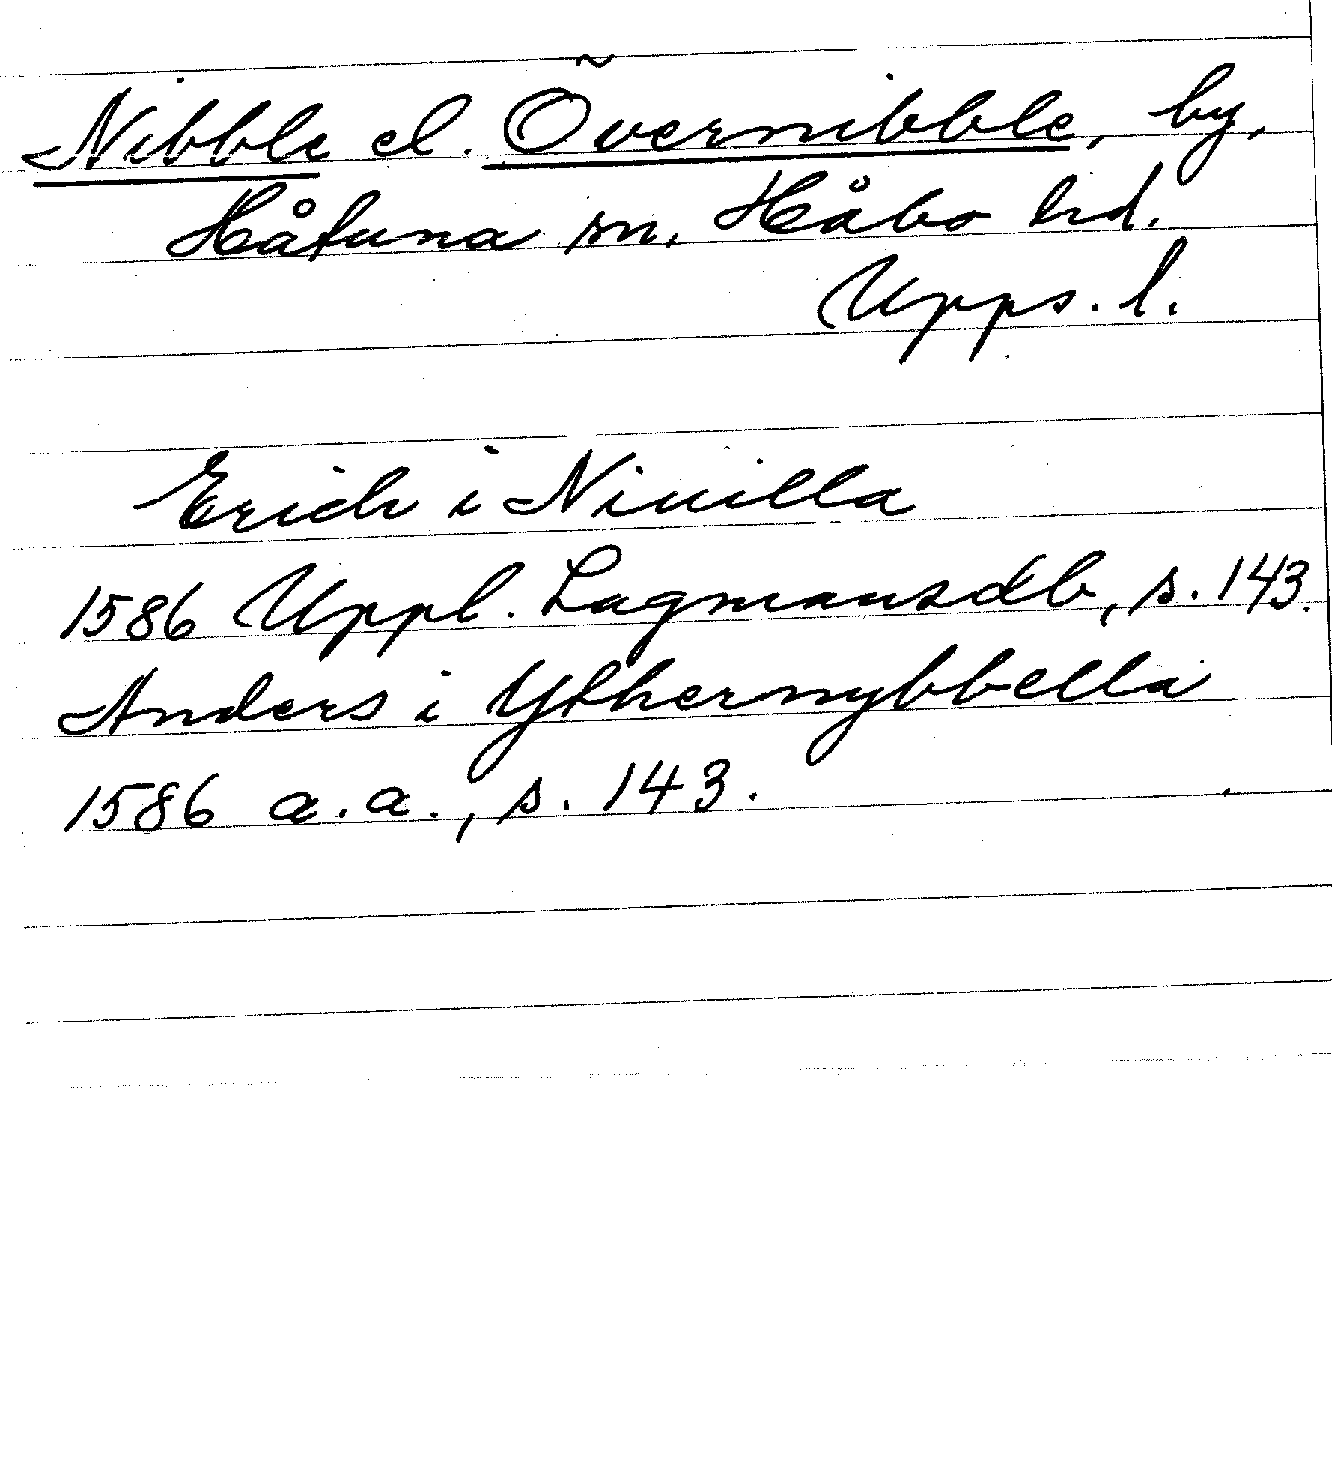 Nibble el. Övernibble, by,
Håtuna sn, Håbo hd.
Upps. l.
Erich i Niuilla
1586 Uppl. Lagmansdb, s. 143.
Anders i Ythernybbella
1586 a.a., s. 143.